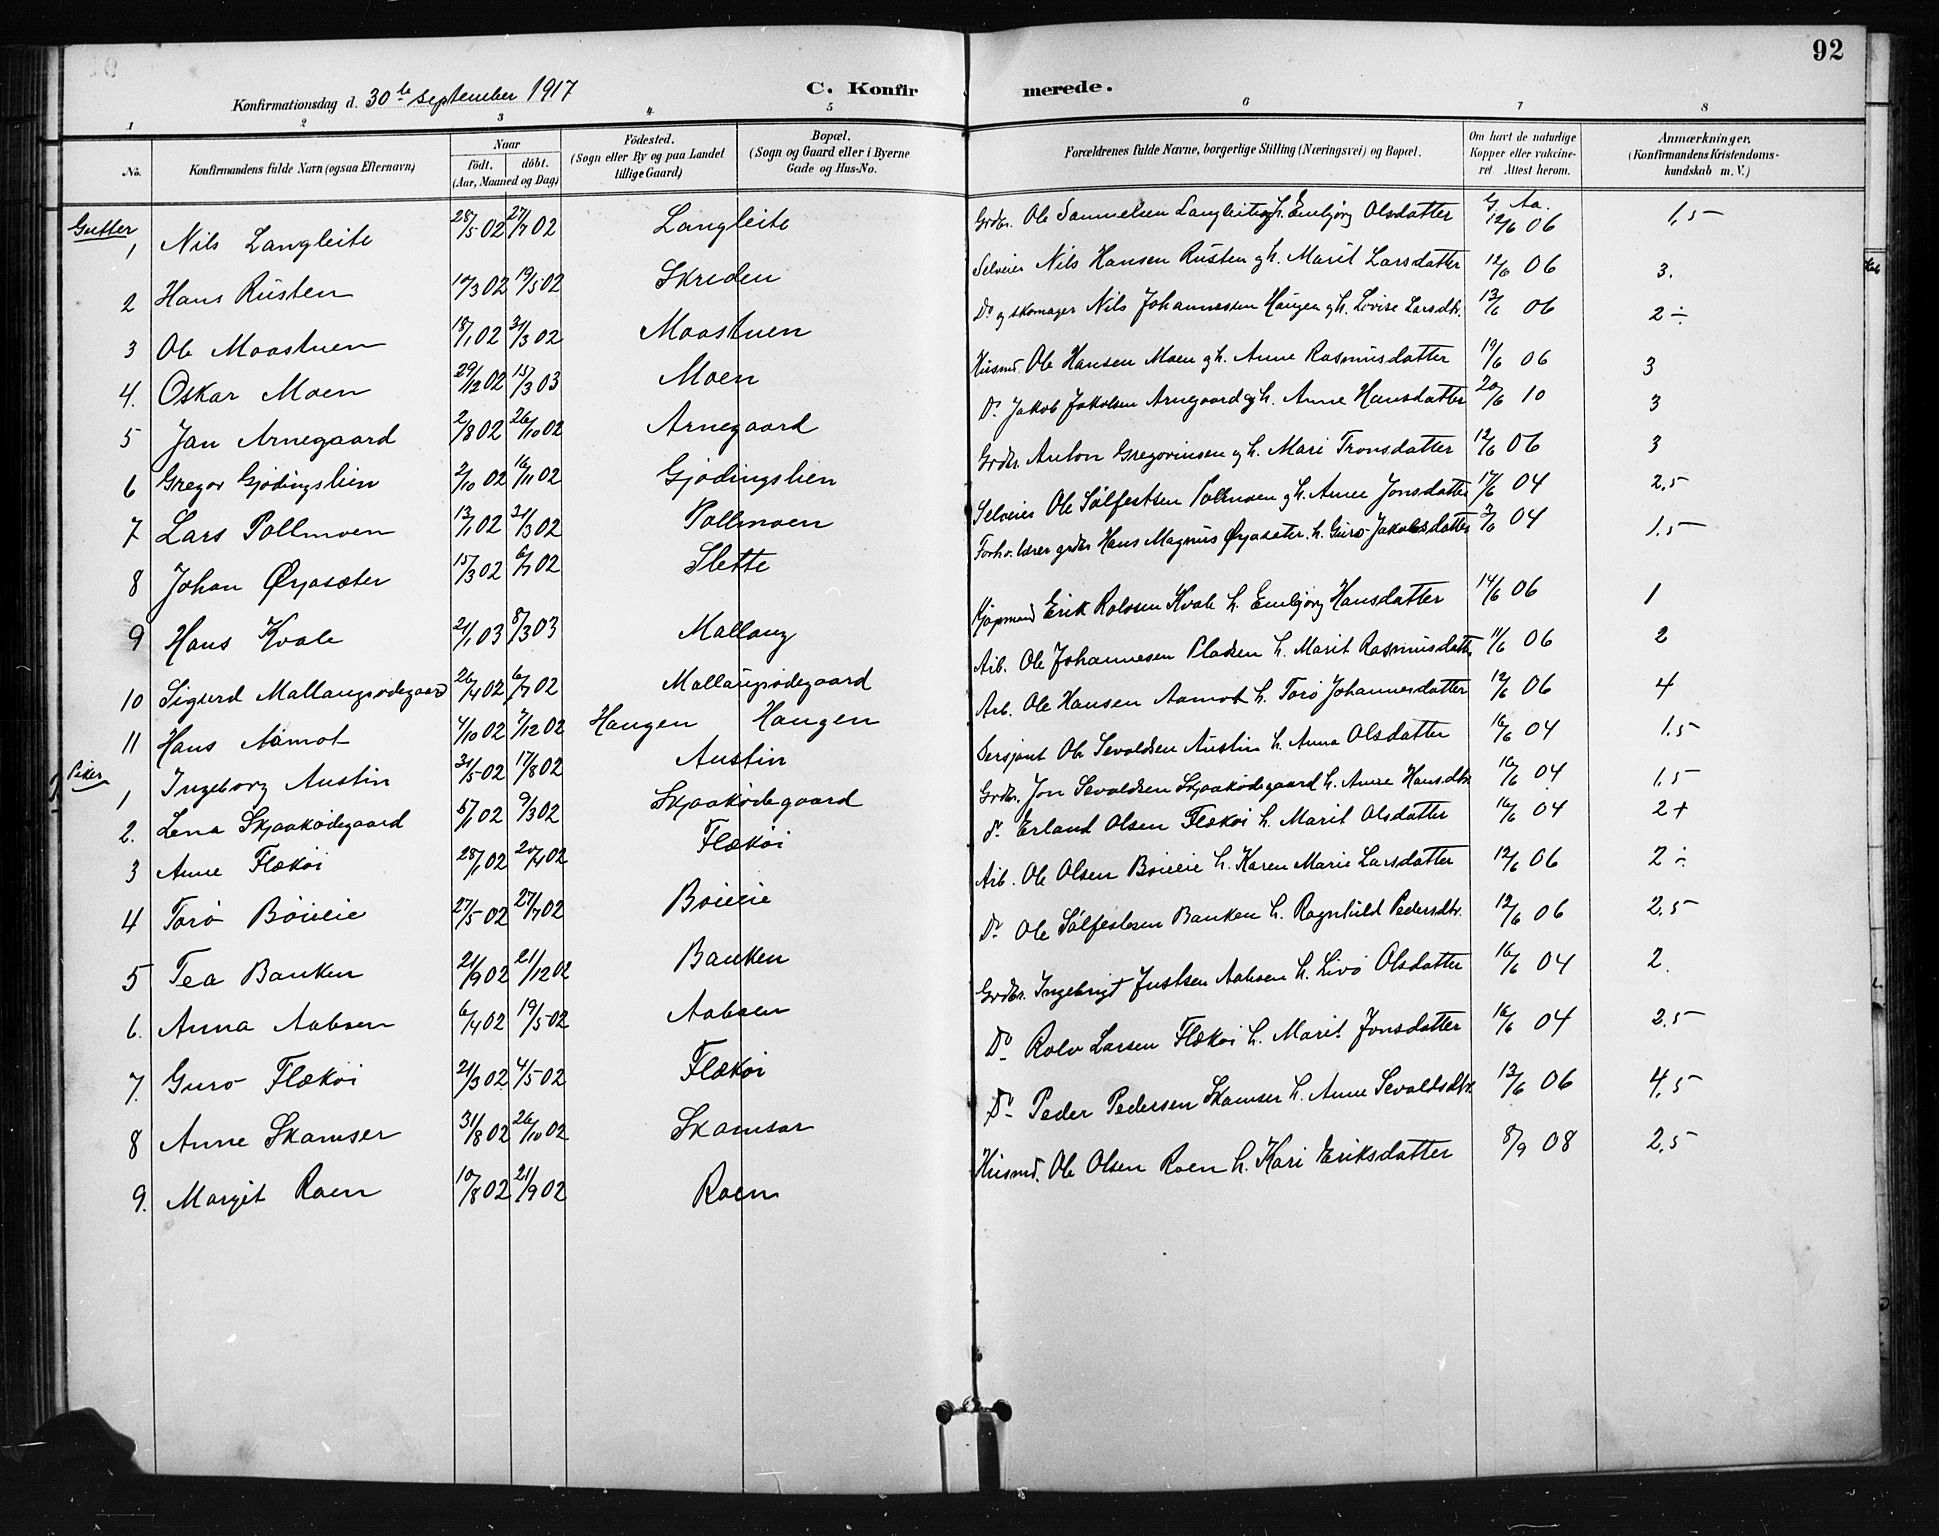 92
Konfirmationsdag d. 30te september 1917 C. Konfirmerede.
1 2 3 4 5 6 7 8
No. Konfirmandens fulde Navn (ogsaa Efternavn) Naar födt. döbt. (Aar, Maaned og Dag) Födested. (Sogn eller By og paa Landet tillige Gaard) Bopæl. (Sogn og Gaard eller i Byerne Gade og Hus-No. Forældrenes fulde Navne, borgerlige Stilling (Næringsvei) og Bopæl. Om havt de naturlige Kopper eller vakcineret Attest herom. Anmærkninger, (Konfirmandens Kristendomskundskab m. V.)
Gutter
1 Nils Langleite 28/5 02 27/7 02 Langleite Grdbr. Ole Samuelsen Langleite og h. Embjørg Olsdatter G. Aa. 12/6 06 1,5
2 Hans Rusten 17/3 02 19/5 02 Skreden Selveier Nils Hansen Rusten og h. Marit Larsdatter 12/6 06 3.
3 Ole Moastuen 18/1 02 31/3 02 Moastuen Do og skomager Nils Johannessen Haugen og h. Lovise Larsdtr. 13/6 06 2÷
4. Oskar Moen 29/12 02 15/3 03 Moen Husmd. Ole Hansen Moen og h. Anne Rasmusdatter 19/6 06 3
5 Jan Arnegaard 2/8 02 26/10 02 Arnegaard Do Jakob Jakobsen Arnegaard og h. Anne Hansdatter 20/6 10 3
6 Gregor Gjødingslien 2/10 02 16/11 02 Gjødingslien Grdbr. Anton Gregoriusen og h. Mari Tronsdatter 12/6 06 3
7 Lars Pollmoen 13/1 02 31/3 02 Pollmoen Selveier Ole Sølfestsen Pollmoen og h. Anne Jonsdatter 17/6 04 2,5
8 Johan Øyasæter 15/3 02 6/7 02 Slette Forhv. lærer grdbr Hans Magnus Øyasæter. h. Guro Jakobsdatter 04 1.5
9 Hans Kvale 21/1 03 8/3 03 Mallang Kjøpmand Erik Rolvsen Kvale h. Embjørg Hansdatter 14/6 06 1
10 Sigurd Mallangsødegaard 26/4 02 6/7 02 Mallangsødegaard Arb. Ole Johannesen Pladsen h. Marit Rasmusdatter 11/6 06 2
11 Hans Aamot 4/10 02 7/12 02 Haugen Haugen Arb. Ole Hansen Aamot h. Torø Johannesdatter 12/6 06 4
Piker
1 Ingeborg Austin 31/5 02 17/8 02 Austin Sersjant Ole Sevaldsen Austin h. Anna Olsdatter 16/6 04 1.5
2. Lena Skjaakødegaard 5/1 02 9/3 02 Skjaakødegaard Grdbr. Jon Sevaldsen Skjaakødegaard h. Anne Hansdtr 16/6 04 1,5
3 Anne Flækøi 28/1 02 20/4 02 Flækøi do Erland Olsen Flækøi h. Marit Olsdatter 16/6 04 2+
4 Torø Bøieie 27/5 02 27/7 02 Bøieie Arb. Ole Olsen Bøieie h. Karen Marie Larsdatter 12/6 06 2÷
5 Tea Banken 21/9 02 21/12 02 Banken Do Ole Sølfestsen Banken h. Ragnhild Pedersdtr. 12/6 06 2,5
6. Anna Aabøen 6/4 02 19/5 02 Aabøen Grdbr. Ingebrigt Justsen Aabøen h. Livø Olsdatter 16/6 04 2.
7. Guro Flækøi 21/3 02 4/5 02 Flækøi Do Rolv Larsen Flækøi h. Marit Jonsdatter 16/6 04 2,5
8 Anne Skamser 31/8 02 26/10 02 Skamsar Do Peder Pedersen Skamser h. Anne Sevaldsdtr. 13/6 06 4,5
9. Margit Roen 10/8 02 21/9 02 Roen Husmd. Ole Olsen Roen h. Kari Eriksdatter 8/9 08 2,5